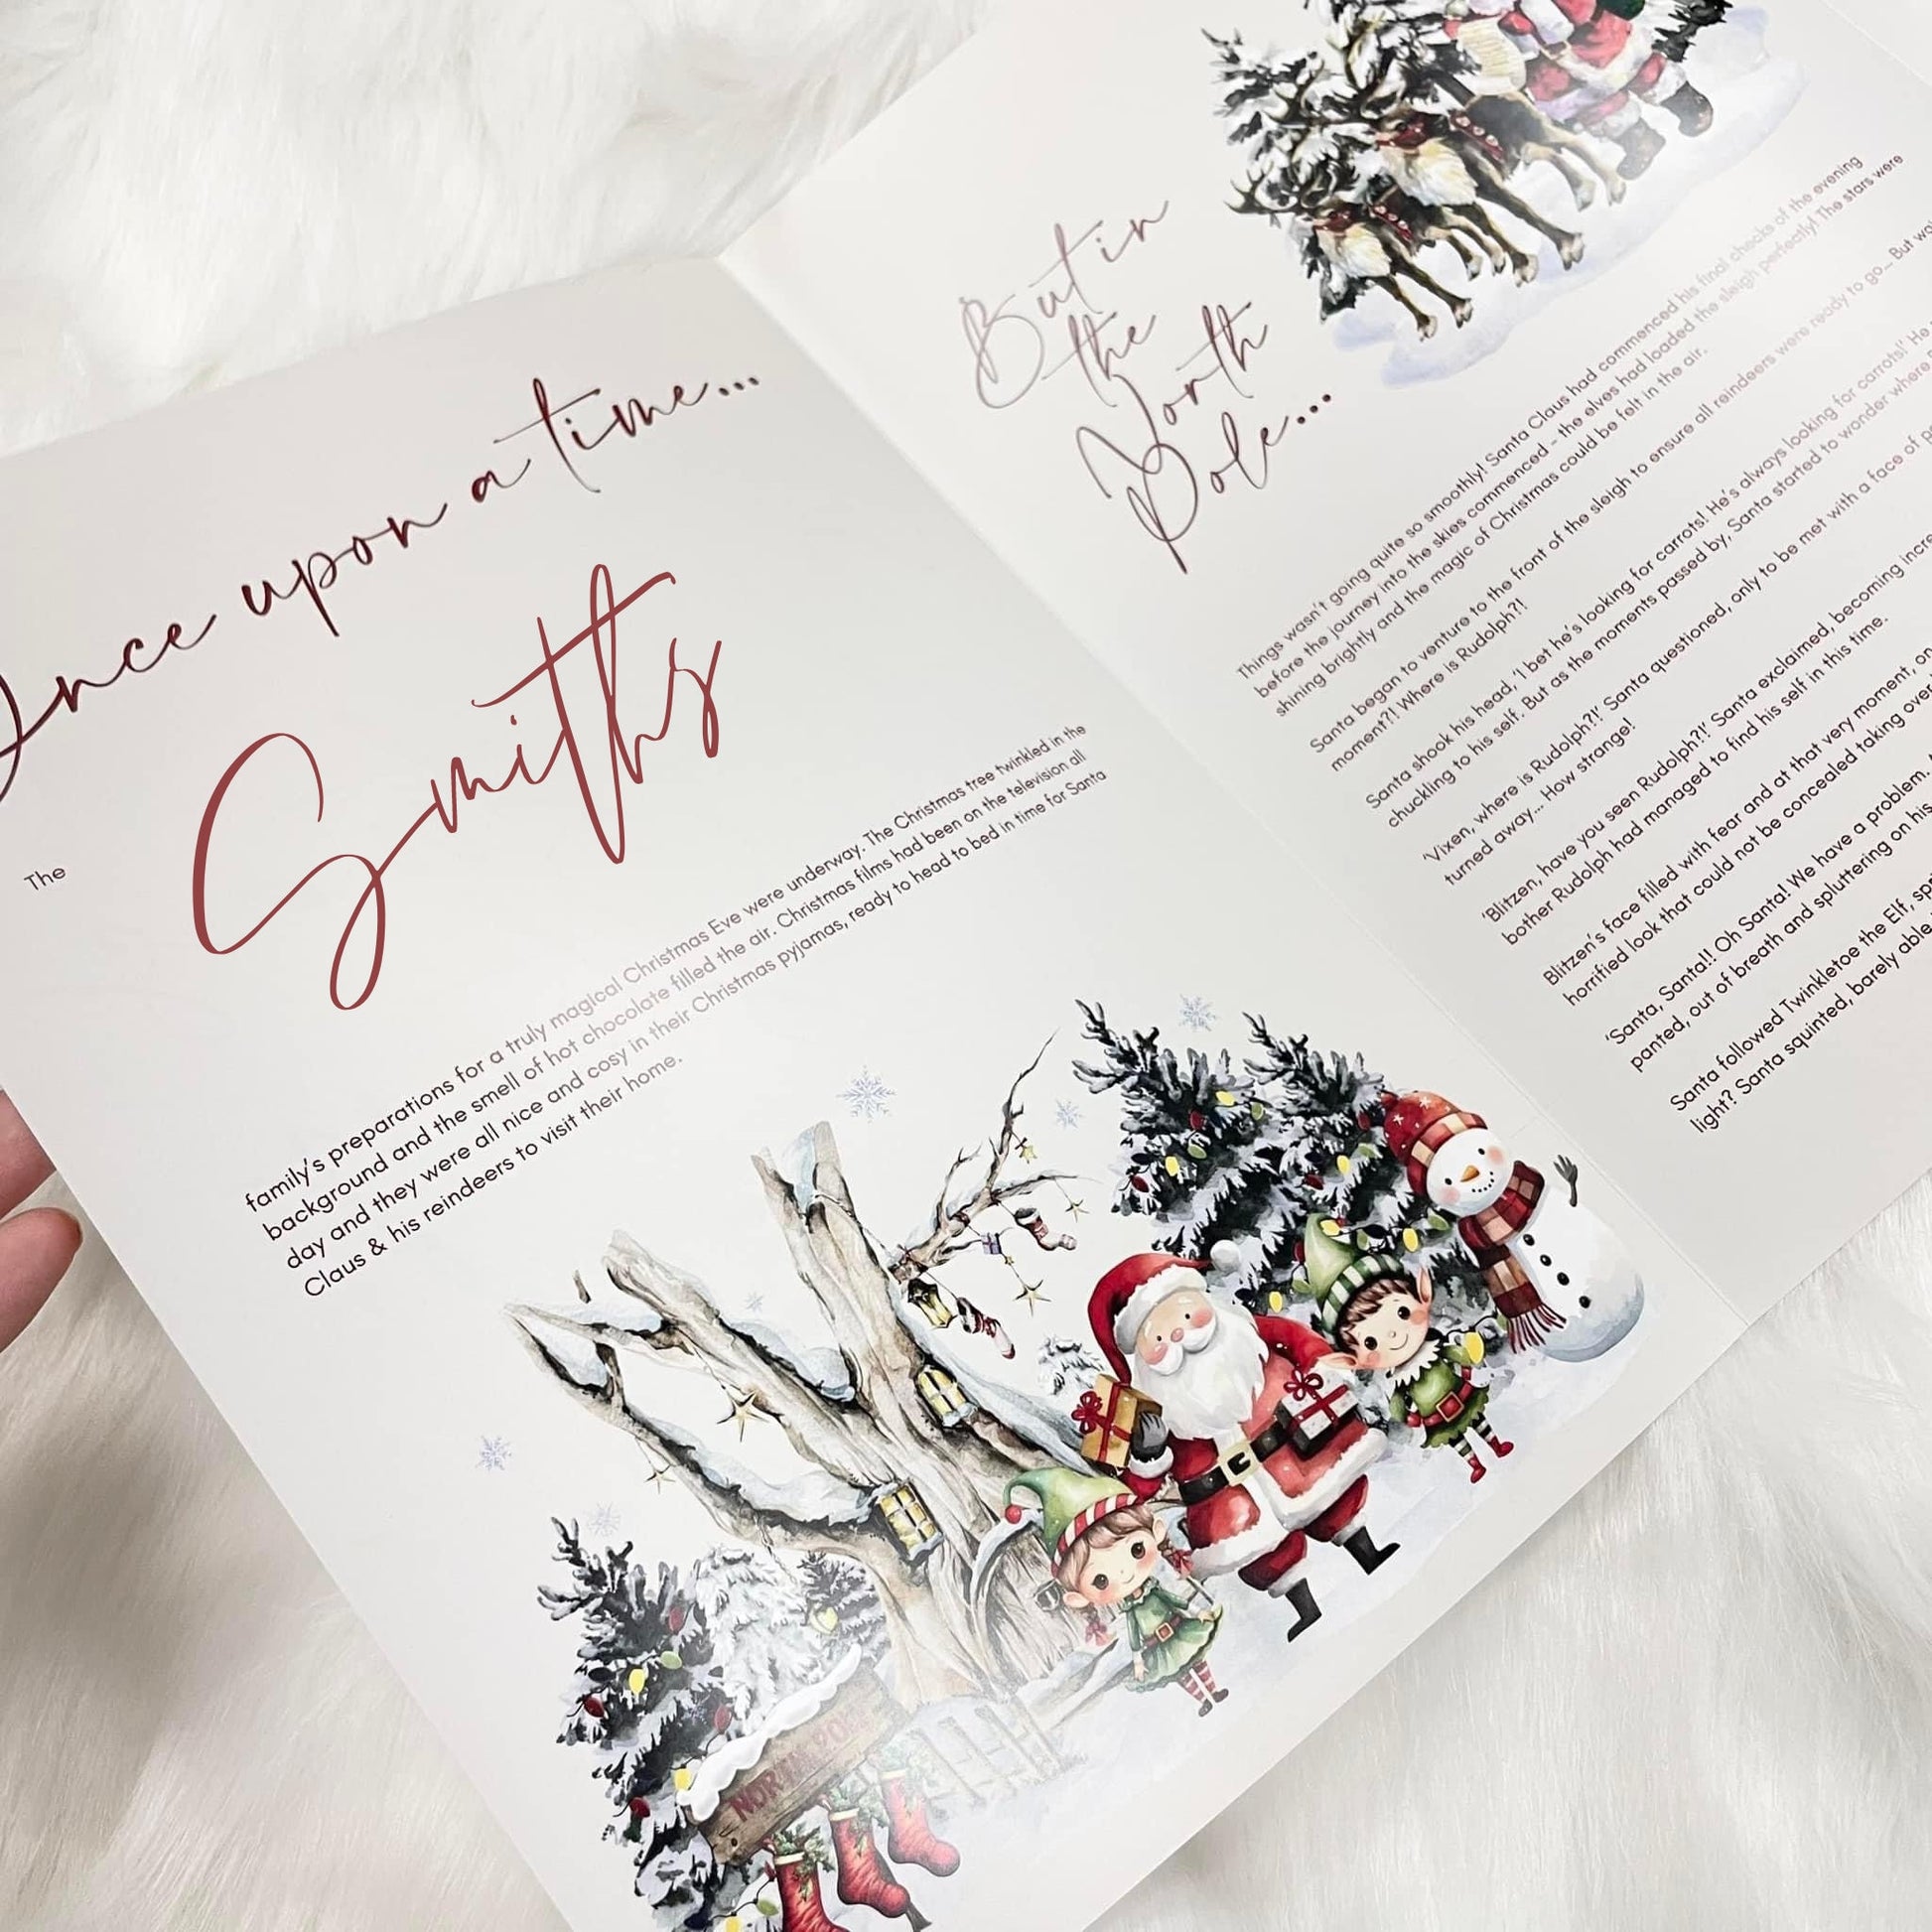 Once upon a time...
The
Smiths
family's preparations for a truly magical Christmas Eve were underway. The Christmas tree twinkled in the
background and the smell of hot chocolate filled the air. Christmas films had been on the television all
day and they were all nice and cosy in their Christmas pyjamas, ready to head to bed in time for Santa
Claus & his reindeers to visit their home.
NORTH POLE
But in
the
North
Pole...
Things wasn't going quite so smoothly! Santa Claus had commenced his final checks of the evening
before the journey into the skies commenced - the elves had loaded the sleigh perfectly! The stars were
shining brightly and the magic of Christmas could be felt in the air.
Santa began to venture to the front of the sleigh to ensure all reindeers were ready to go... But
moment?! Where is Rudolph?!
Santa shook his head, 'I bet he's looking for carrots! He's always looking for carrots!' He
chuckling to his self. But as the moments passed by, Santa started to wonder where
'Vixen, where is Rudolph?!' Santa questioned, only to be met with a face of
turned away... How strange!
'Blitzen, have you seen Rudolph?!' Santa exclaimed, becoming
bother Rudolph had managed to find his self in this time.
Blitzen's face filled with fear and at that very moment,
horrified look that could not be concealed taking over
'Santa, Santa!! Oh Santa! We have a problem.
panted, out of breath and spluttering on his
Santa followed Twinkletoe the Elf,
light? Santa squinted, barely able